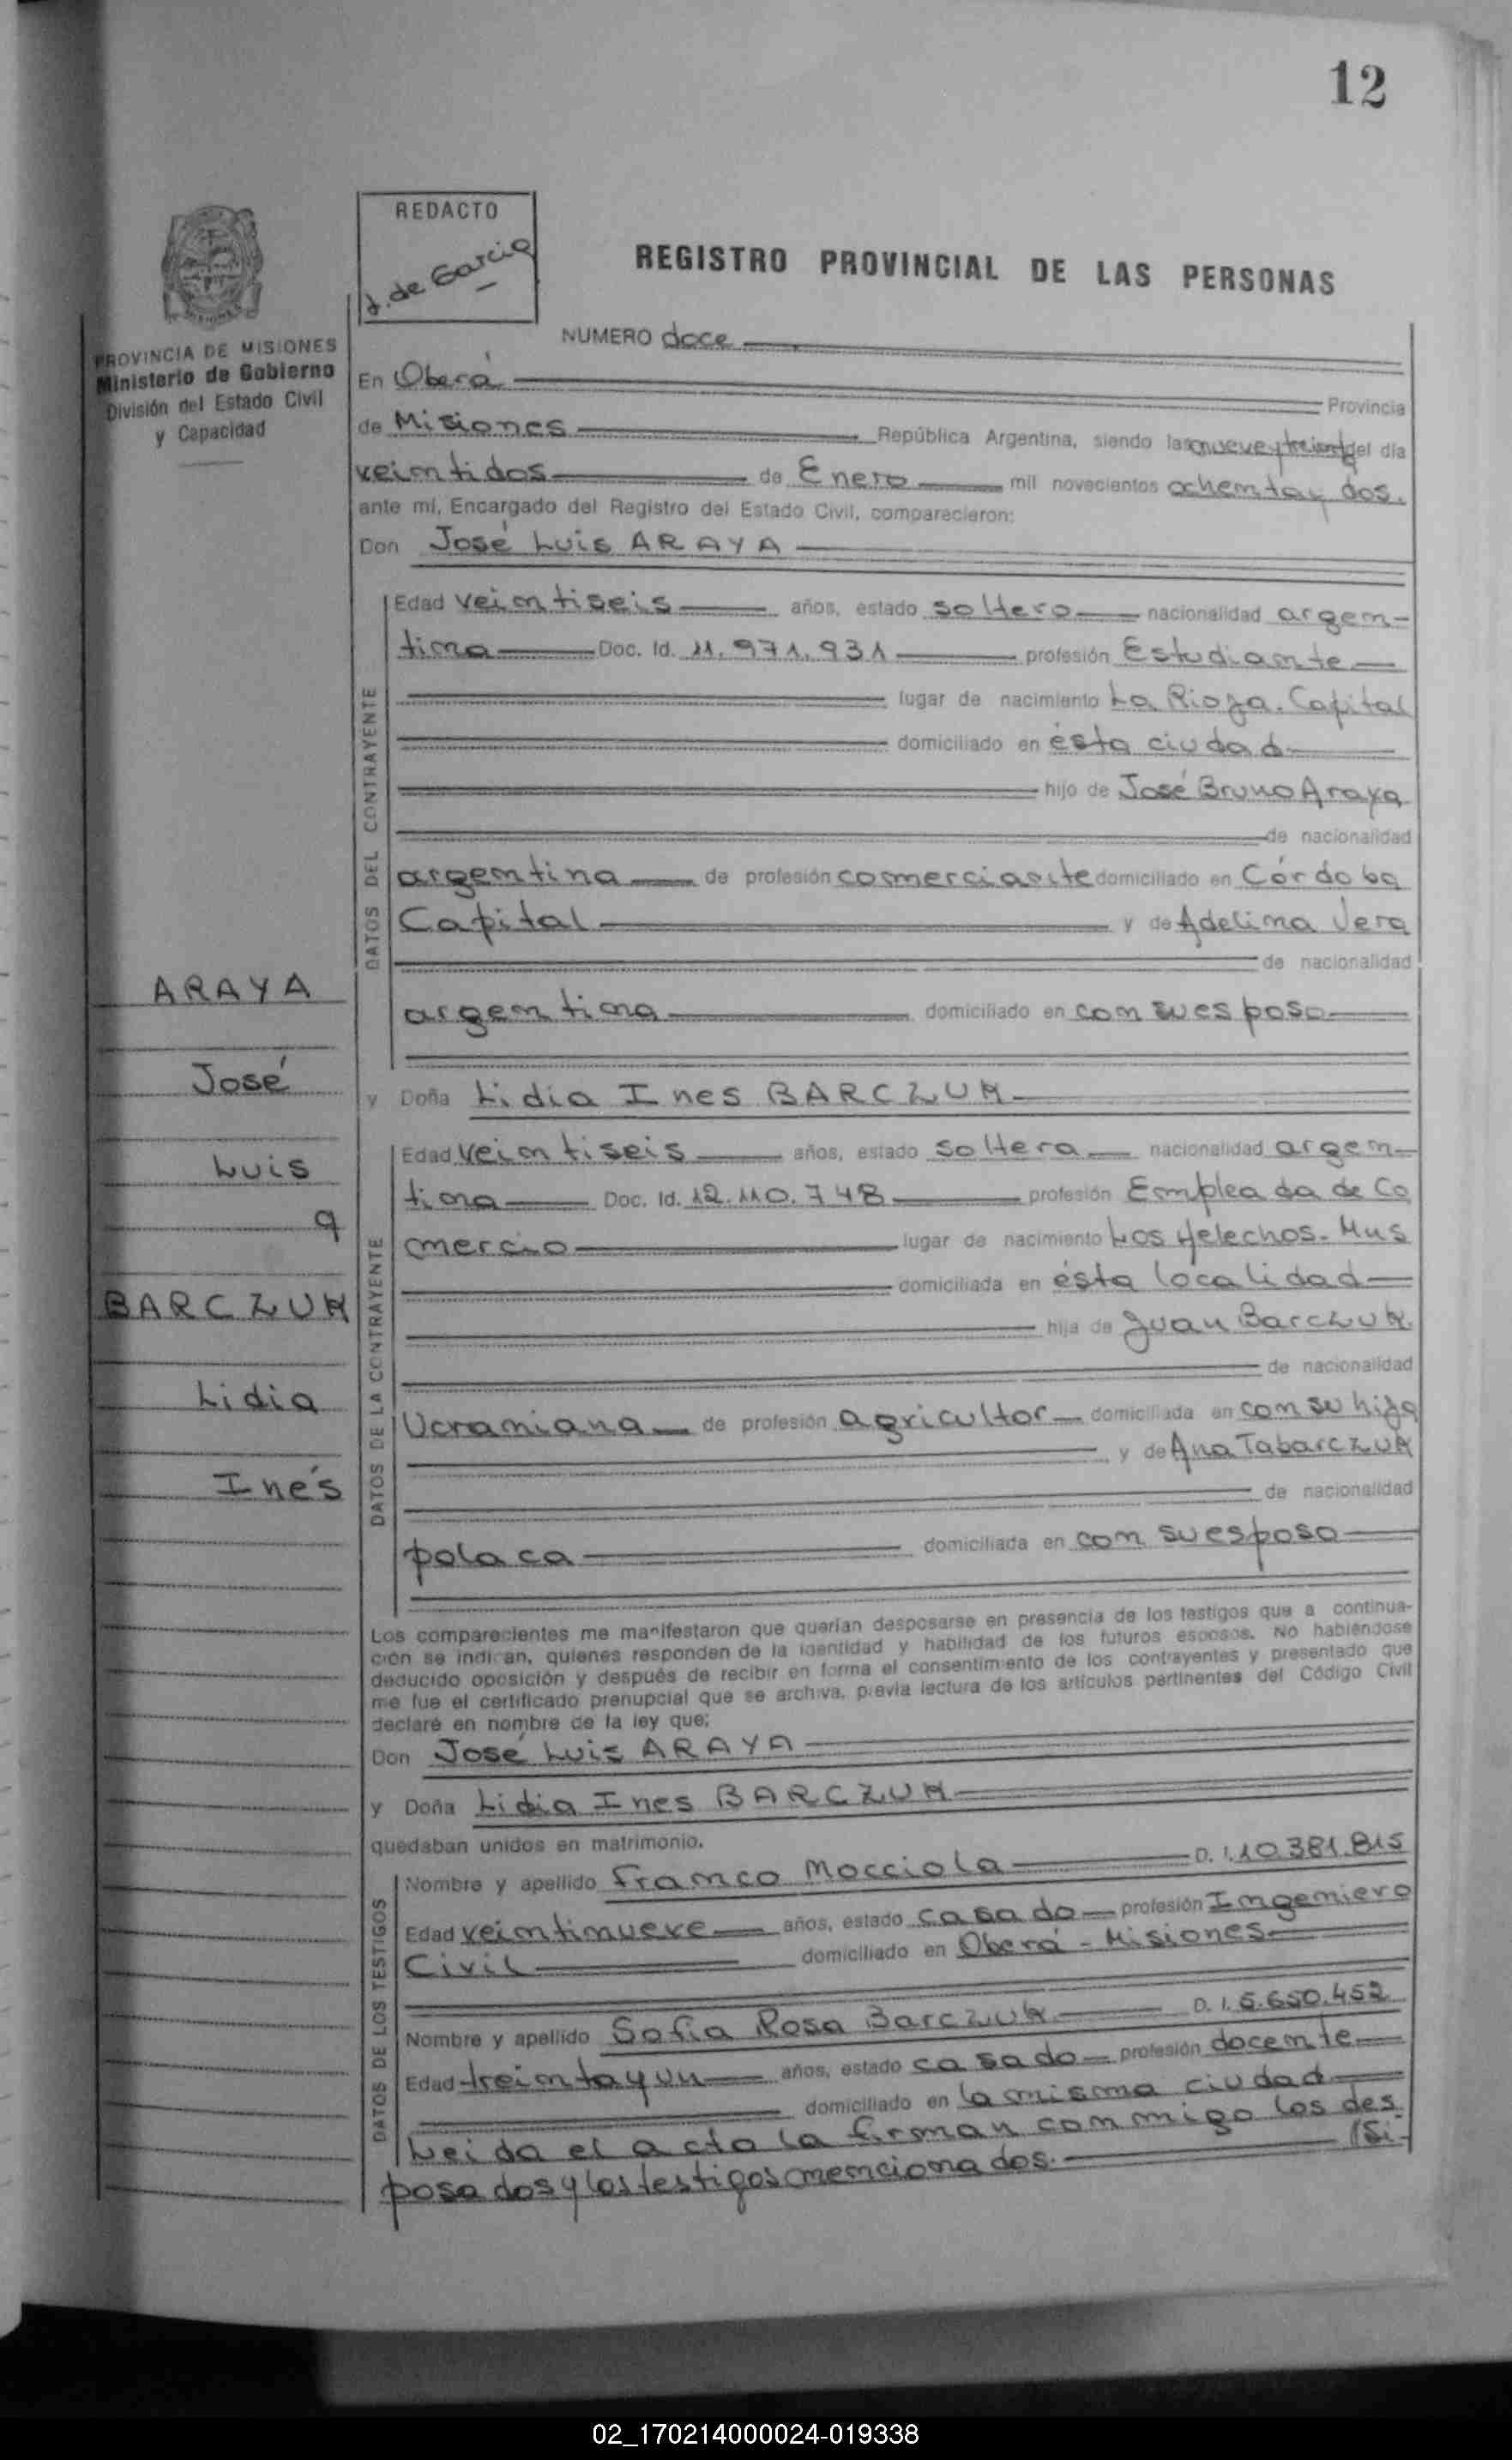 12
REDACTO
J. de Garcia
REGISTRO PROVINCIAL DE LAS PERSONAS
PROVINCIA DE MISIONES
Ministerio de Gobierno
División del Estado Civil
y Capacidad
NUMERO doce
En Oberá Provincia
de Misiones República Argentina, siendo las nueve y treinta del día
veintidos de Enero mil novecientos ochenta y dos.
ante mí, Encargado del Registro del Estado Civil, comparecieron:
Don José Luis ARAYA
DATOS DEL CONTRAYENTE
Edad veintiseis años, estado soltero nacionalidad argen-
tina Doc. Id. 11.971.931 profesión Estudiante
lugar de nacimiento La Rioja. Capital
domiciliado en ésta ciudad
hijo de José Bruno Araya
de nacionalidad
argentina de profesión comerciante domiciliado en Córdoba
Capital y de Adelina Vera
de nacionalidad
argentina domiciliado en con su esposo
y Doña Lidia Ines BARCZUK
DATOS DE LA CONTRAYENTE
Edad veintiseis años, estado soltera nacionalidad argen-
tina Doc. Id. 12.110.748 profesión Empleada de Co
mercio lugar de nacimiento Los Helechos. Mns
domiciliada en ésta localidad
hija de Juan Barczuk.
de nacionalidad
Ucraniana de profesión agricultor domiciliada en con su hija
y de Ana Tabarczuk
de nacionalidad
polaca domiciliada en con su esposo
ARAYA
José
Luis
y
BARCZUK
Lidia
Inés
Los comparecientes me manifestaron que querían desposarse en presencia de los testigos que a continua-
ción se indican, quienes responden de la identidad y habilidad de los futuros esposos. No habiéndose
deducido oposición y después de recibir en forma el consentimiento de los contrayentes y presentado que
me fue el certificado prenupcial que se archiva, previa lectura de los artículos pertinentes del Código Civil
declaré en nombre de la ley que:
Don José Luis ARAYA
y Doña Lidia Ines BARCZUK
quedaban unidos en matrimonio.
DATOS DE LOS TESTIGOS
Nombre y apellido Franco Mocciola D. I. 10.381.815
Edad veintinueve años, estado casado profesión Ingeniero
Civil domiciliado en Oberá - Misiones
Nombre y apellido Sofia Rosa Barczuk D. I. 6.650.452
Edad treinta y un años, estado casado profesión docente
domiciliado en la misma ciudad
Leida el acta la firman conmigo los des
posados y los testigos mencionados. (Si-
02_170214000024-019338